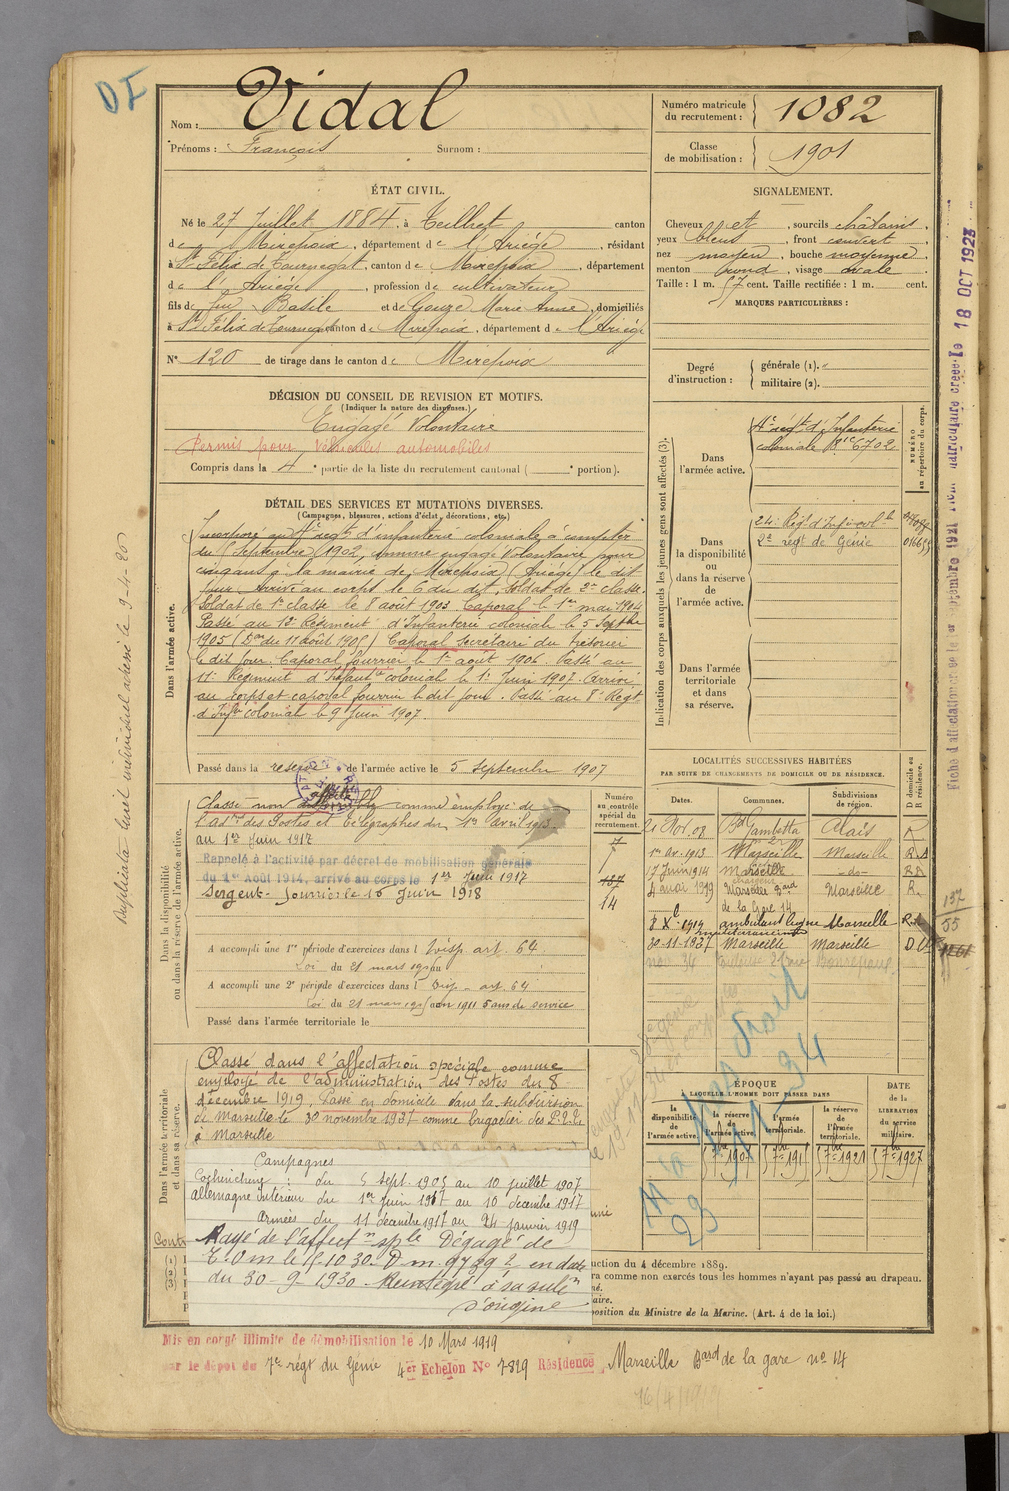 DI
Nom : Vidal
Prénoms : François Surnom :
Numéro matricule du recrutement : 1082
Classe de mobilisation : 1901
ÉTAT CIVIL.
Né le 27 Juillet 1884, à Teilhet canton
de Mirepoix, département de l'Ariége, résidant
à St Félix de Tournegat, canton de Mirepoix, département
de l'Ariége, profession de cultivateur
fils de feu Basile et de Gouze Marie Anne, domiciliés
à St Félix de Tournegat canton de Mirepoix, département de l'Ariége
N° 120 de tirage dans le canton de Mirepoix
SIGNALEMENT.
Cheveux et, sourcils châtains,
yeux bleus, front couvert,
nez moyen, bouche moyenne,
menton rond, visage ovale
Taille : 1 m. 57 cent. Taille rectifiée : 1 m. cent.
MARQUES PARTICULIÈRES :
Degré d'instruction : générale (1).
militaire (2).
DÉCISION DU CONSEIL DE REVISION ET MOTIFS.
(Indiquer la nature des dispenses.)
Engagé Volontaire
Permis pour Véhicules automobiles
Compris dans la 4e partie de la liste du recrutement cantonal ( portion).
DÉTAIL DES SERVICES ET MUTATIONS DIVERSES.
(Campagnes, blessures, actions d'éclat, décorations, etc.)
Dans l'armée active.
Incorporé au 4e régt d'infanterie coloniale à compter
du Septembre 1902, comme engagé Volontaire pour
cinq ans à la mairie de Mirepoix (Ariége) le dit
jour. Arrivé au corps le 6 du dit, soldat de 2e classe.
Soldat de 1e classe le 8 août 1903. Caporal le 1er mai 1904
Passé au Régiment d'Infanterie coloniale le 5 Septbre
1905 (Don du 11 août 1905) Caporal Secrétaire du trésorier
le dit jour. Caporal fourrier le 1er août 1906. Passé au
11e Régiment d'Infantie colonial le 1er Juin 1907. Arrivé
au corps et caporal fourrier le dit jour. Passé au 8e Régt
d'Infie colonial le 9 Juin 1907.
Passé dans la réserve de l'armée active le 5 Septembre 1907
Indication des corps auxquels les jeunes gens sont affectés (3).
NUMÉRO au répertoire du corps.
Dans l'armée active.
4e régt d'Infanterie
coloniale 6702
Dans la disponibilité ou dans la réserve de l'armée active.
24e Régt d'Infie colle
2e régt de Génie
Dans l'armée territoriale et dans sa réserve.
Dans la disponibilité ou dans la réserve de l'armée active.
Classé non affecté comme employé de
l'Adon des Postes et Télégraphes du 1er avril 1913
au 1er Juin 1917
Rappelé à l'activité par décret de mobilisation générale
du 1er Août 1914, arrivé au corps le 1er Juin 1917
Sergent-fourrier le 16 Juin 1918
A accompli une 1re période d'exercices dans l Disp. art. 64
Loi du 21 mars 1905
A accompli une 2e période d'exercices dans l Disp. art. 64
Loi du 21 mars 1905 5 ans de service
Passé dans l'armée territoriale le
Numéro au contrôle spécial du recrutement.
137
14
LOCALITÉS SUCCESSIVES HABITÉES
PAR SUITE DE CHANGEMENTS DE DOMICILE OU DE RÉSIDENCE.
Dates. Communes. Subdivisions de région. D domicile ou R résidence.
21 Nov. 08 Bd Gambetta Alais R
1er Av. 1913 Marseille Marseille
17 Juin 1914 Marseille -do-
4 mai 1919 Marseille Bard de la Gare 14 Marseille R.
8 Xe 1919 ambulant ligne méditerranée Marseille
30-11-1927 Marseille Marseille
nov 34 Toulouse
137
55
Dans l'armée territoriale et dans sa réserve.
Classé dans l'affectation spéciale comme
employé de l'administration des Postes du 8
décembre 1919. Passé en domicile dans la subdivision
de Marseille le 30 novembre 1927 comme brigadier des P.T.T.
à Marseille
Campagnes
Cochinchine : du 5 Sept. 1905 au 10 juillet 1907
Allemagne Intérieur du 1er juin 1917 au 10 décembre 1917
Armées du 11 décembre 1917 au 24 janvier 1919
Rayé de l'affectn sple Dégagé de
T.O m le 15-10 30. D m 9739 2 en date
du 30-9-1930. Réintégré à sa subn
d'origine
ÉPOQUE
LAQUELLE L'HOMME DOIT PASSER DANS
la disponibilité de l'armée active. la réserve de l'armée active. l'armée territoriale. la réserve de l'armée territoriale.
DATE de la LIBÉRATION du service militaire.
uction du 4 décembre 1889.
ra comme non exercés tous les hommes n'ayant pas passé au drapeau.
aire.
position du Ministre de la Marine. (Art. 4 de la loi.)
Mis en congé illimité de démobilisation le 10 Mars 1919
par le dépôt du 7e régt du Génie 4er Echelon N° 7819 Résidence Marseille Bard de la gare no 14
Duplicata livret individuel adressé le 9-4-20
18 OCT 1923